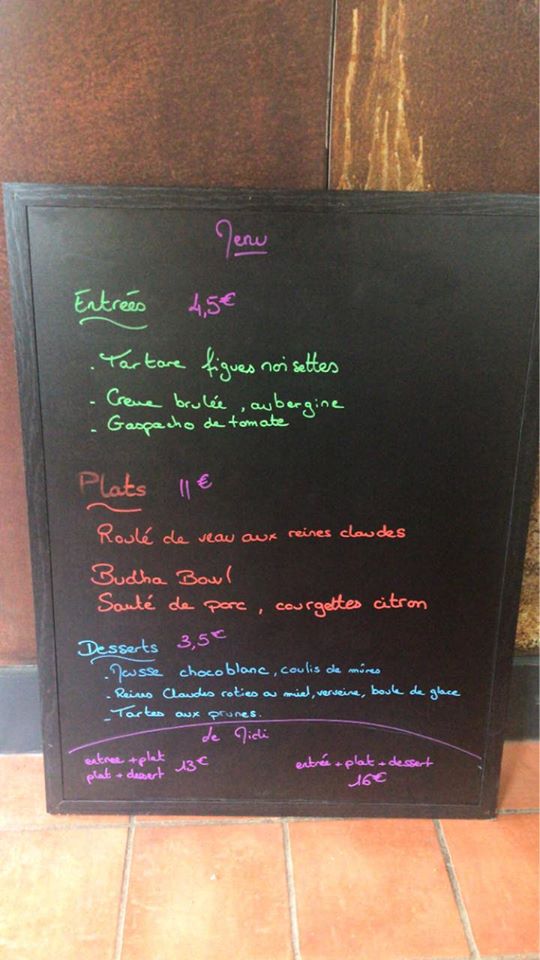 Menu
Entrées 4,5€
. Tartare figues noisettes
- Creme brulée, aubergine
- Gaspacho de tomate
Plats 11€
Roulé de veau aux reines claudes
Budha Bowl
Sauté de porc, courgettes citron
Desserts 3,5€
. Mousse choco blanc, coulis de mûres
. Reines Claudes roties au miel, verveine, boule de glace
- Tartes aux prunes.
de Midi
entree + plat
plat + dessert 13€
entrée + plat + dessert
16€